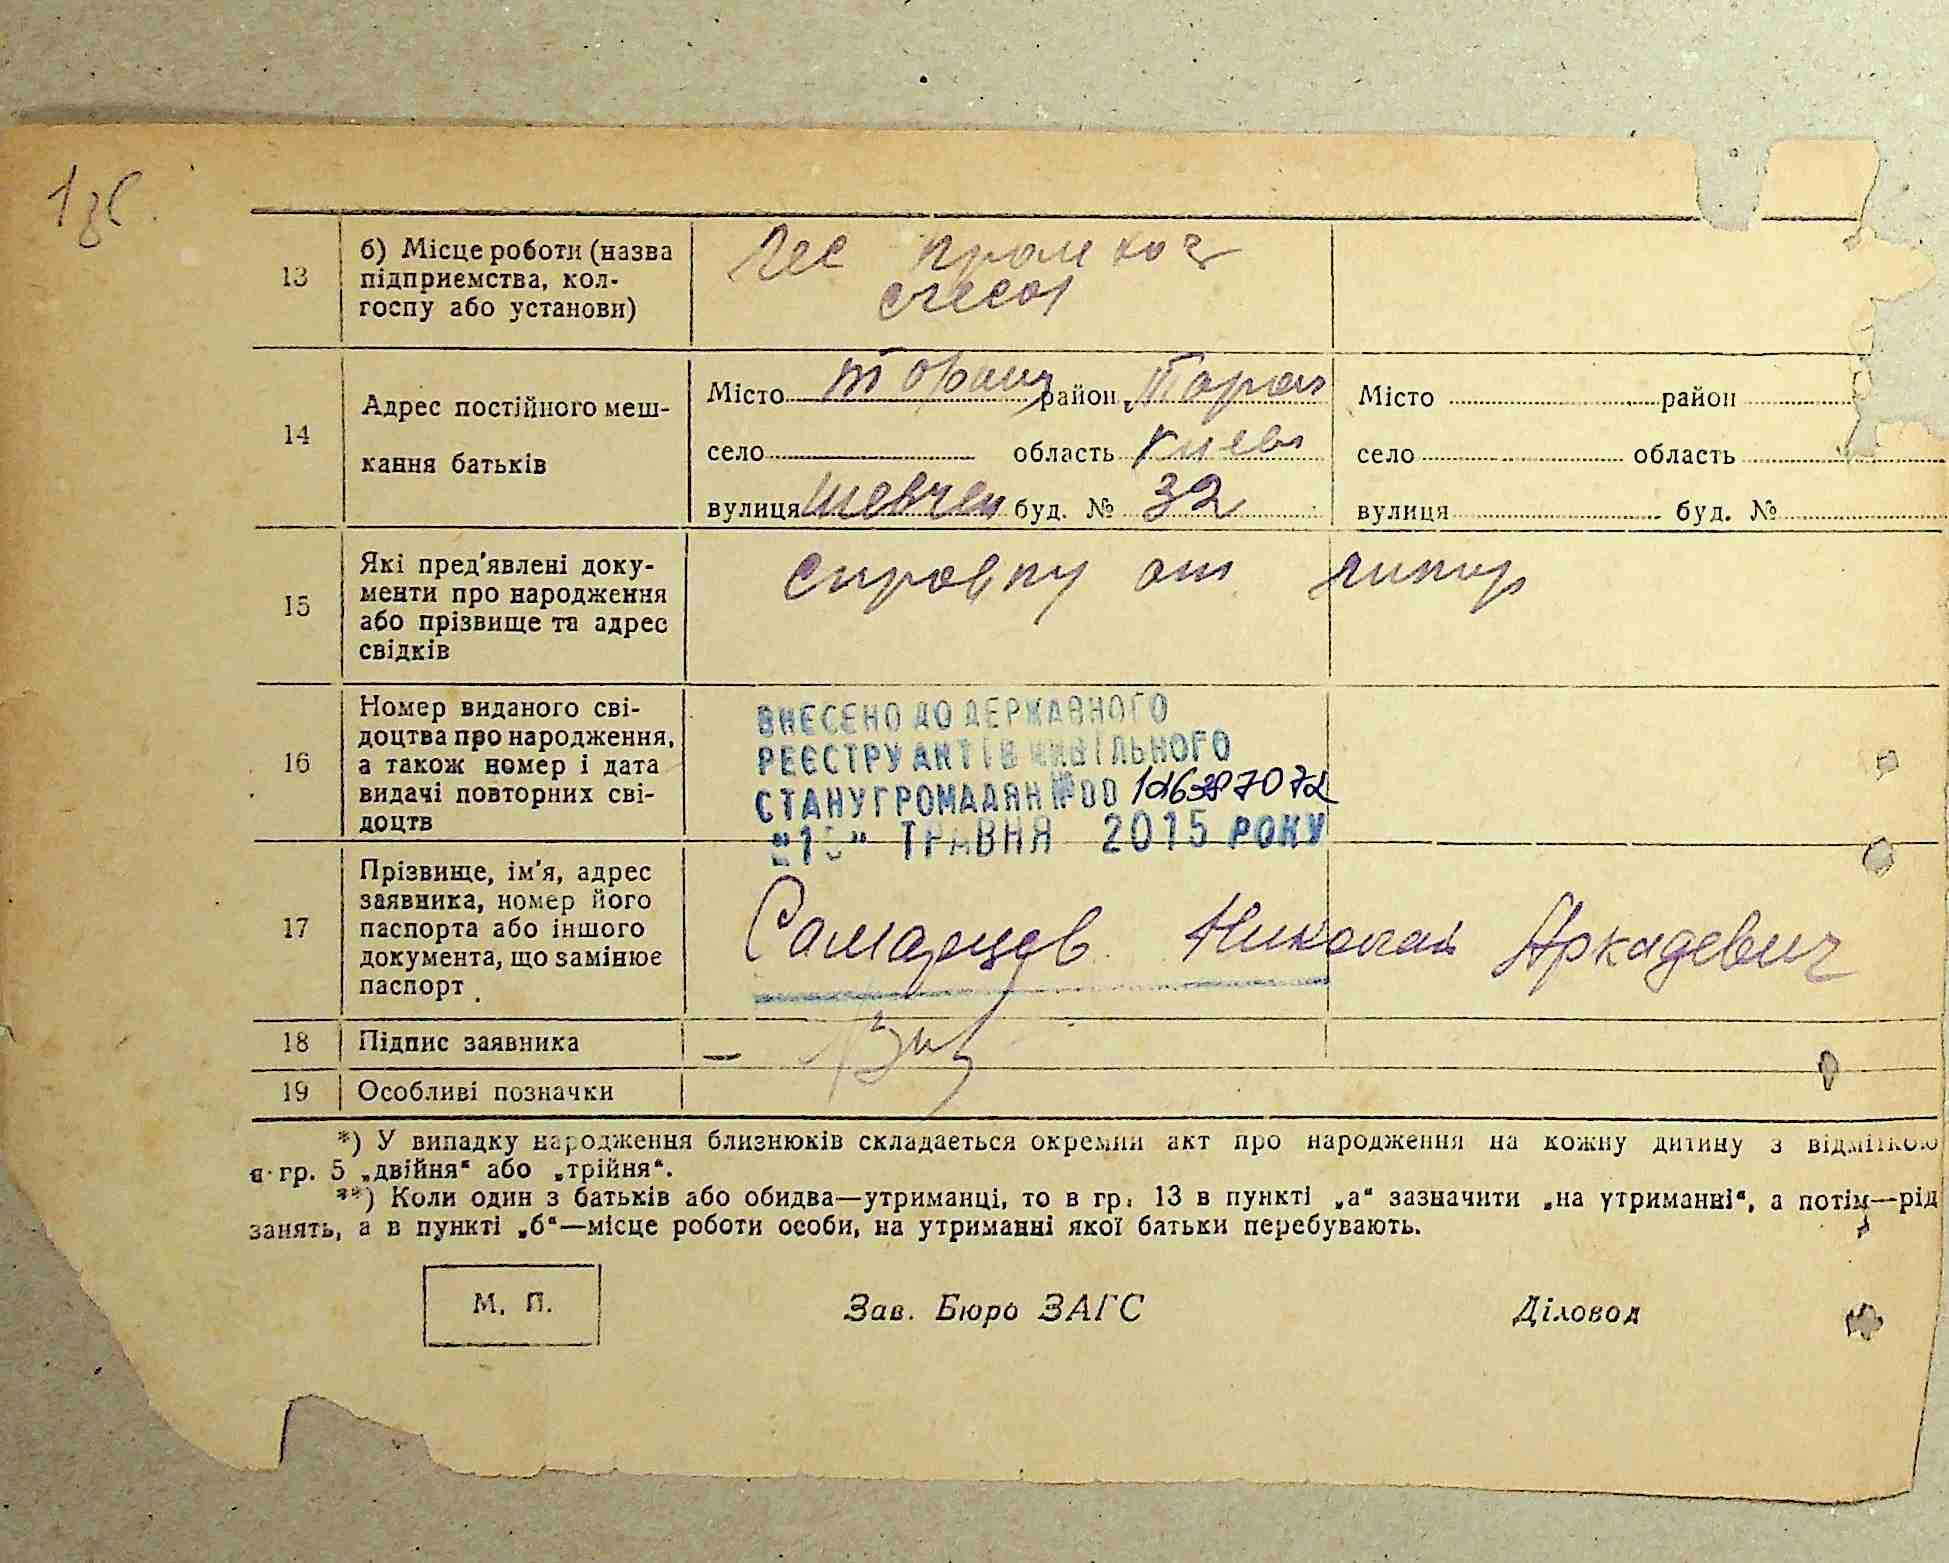 13
б) Місце роботи (назва
підприємства, кол-
госпу або установи)
14
Адрес постійного меш-
кання батьків
Місто район
село область Киев
вулиця Шевчен буд. № 32
Місто район
село область
вулиця буд. №
15
Які пред'явлені доку-
менти про народження
або прізвище та адрес
свідків
16
Номер виданого сві-
доцтва про народження,
а також номер і дата
видачі повторних сві-
доцтв
ВНЕСЕНО ДО ДЕРЖАВНОГО
РЕЄСТРУ АКТІВ ЦИВІЛЬНОГО
СТАНУ ГРОМАДЯН №00
ТРАВНЯ 2015 РОКУ
17
Прізвище, ім'я, адрес
заявника, номер його
паспорта або іншого
документа, що замінює
паспорт
Самарцев Николай Аркадевич
18
Підпис заявника
19
Особливі позначки
*) У випадку народження близнюків складається окремий акт про народження на кожну дитину з відміткою
в гр. 5 „двійня“ або „трійня“.
**) Коли один з батьків або обидва—утриманці, то в гр. 13 в пункті „а“ зазначити „на утриманні“, а потім—рід
занять, а в пункті „б“—місце роботи особи, на утриманні якої батьки перебувають.
М. П.
Зав. Бюро ЗАГС
Діловод